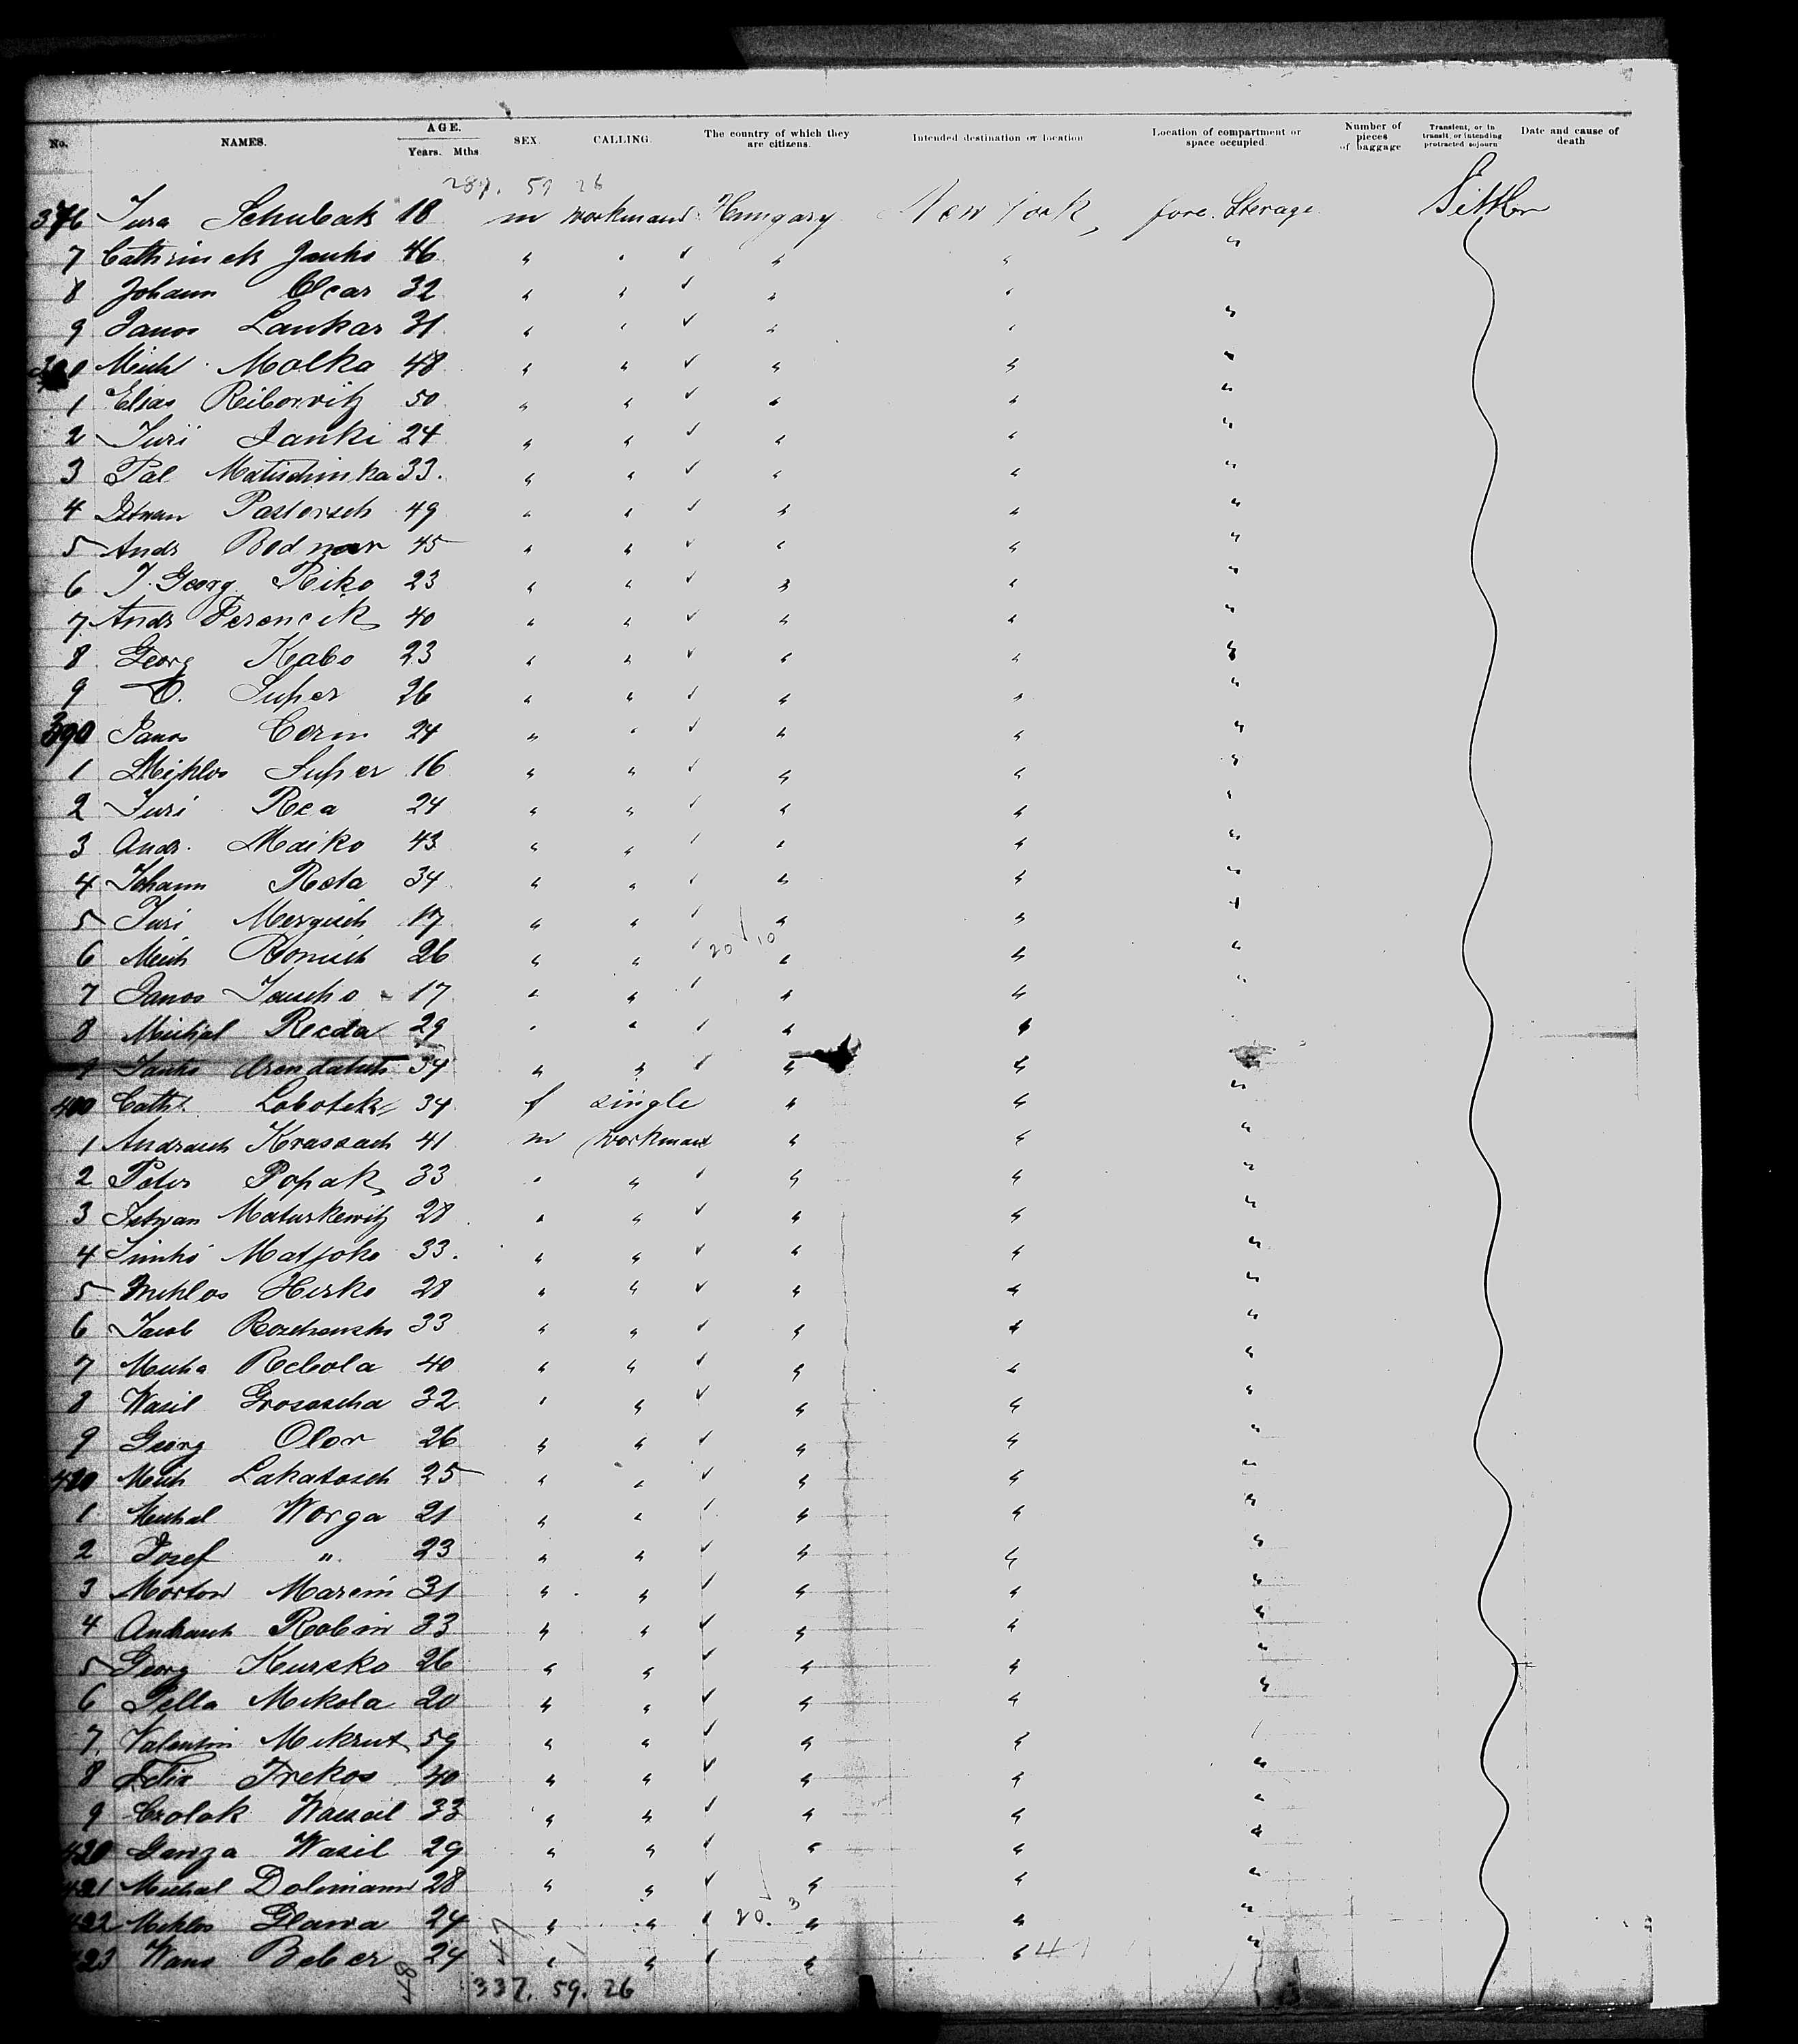 No. NAMES. AGE. Years. Mths. SEX CALLING. The country of which they are citizens. Intended destination or location Location of compartment or space occupied Number of pieces of baggage Transient, or in transit, or intending protracted sojourn Date and cause of death
287. 59 26
376 Jura Schubak 18 m workmann Hungary New York, fore. Sterage Settler
7 Janko 46 " " " " "
8 Johann Olear 32 " " " "
9 Janos Lankar 31 " " " " "
380 Mich Malka 48 " " " " "
1 Elias Reibowitz 50 " " " " "
2 Juri Janki 24 " " " " "
3 Pal Matischinka 33. " " " " "
4 Istwan Pastorsch 49 " " " " "
5 Andr Bodnar 45 " " " " "
6 J. Georg Reiko 23 " " " " "
7 Andr Ferencik 40 " " " " "
8 Georg Kabo 23 " " " " "
9 Super 26 " " " " "
390 Janos Corin 24 " " " " "
1 Mijklos Super 16 " " " " "
2 Juri Rea 24 " " " " "
3 Andr. Maiko 43 " " " " "
4 Johann Rosta 34 " " " " "
5 Juri Mergisch 17 " " " " "
6 Mich Romich 26 " " 20 10 " " "
7 Janos Jauscho 17 " " " " "
8 Michal Recda 29 " " " "
9 Janko Arendatsch 34 " " " "
400 Cath. Lobotek 34 f single " " "
1 Andrasch Kraszach 41 m workman " " "
2 Peter Popak 33 " " " " "
3 Istwan Matuskewitz 28 " " " " "
4 Simko Matjoko 33. " " " " "
5 Miklos Hisko 28 " " " " "
6 Jacob 33 " " " " "
7 Micha Rebola 40 " " " " "
8 Wasil Grosascha 32 " " " " "
9 Georg Olor 26 " " " " "
410 Mich Lakatosch 25 " " " " "
1 Michal Worga 21 " " " " "
2 Josef " 23 " " " " "
3 Morton Marcin 31 " " " " "
4 Andrasch Robin 33 " " " " "
5 Georg Kuszko 26 " " " " "
6 Pella Mikola 20 " " " " "
7 Valentin Mikrut 59 " " " "
8 Felix Trekos 40 " " " " "
9 Czolak Wassil 33 " " " " "
420 Ganza Wasil 29 " " " " "
421 Michal Dolimann 28 " " " " "
422 Miklos Glawa 24 " " 20. 3 " " "
423 Wano Beber 24 " " " " 41 "
47
337. 59. 26